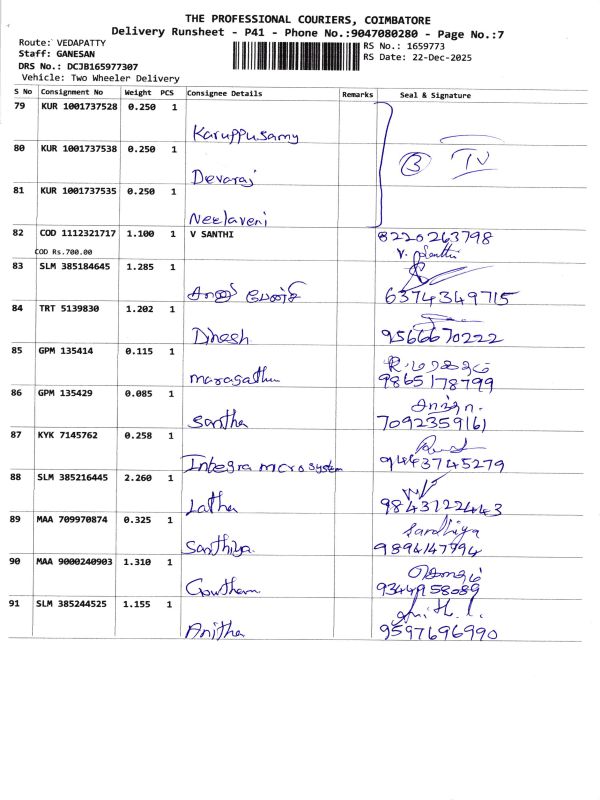 THE PROFESSIONAL COURIERS, COIMBATORE
Delivery Runsheet - P41 - Phone No.:9047080280 - Page No.:7
Route: VEDAPATTY
RS No.: 1659773
Staff: GANESAN
RS Date: 22-Dec-2025
DRS No.: DCJB165977307
Vehicle: Two Wheeler Delivery
S No Consignment No Weight PCS Consignee Details Remarks Seal & Signature
79 KUR 1001737528 0.250 1
Karuppusamy
80 KUR 1001737538 0.250 1
3 IV
Devaraj
81 KUR 1001737535 0.250 1
Neelaveni
82 COD 1112321717 1.100 1 V SANTHI 8220263798
COD Rs.700.00 V. Santhi
83 SLM 385184645 1.285 1
6374349715
84 TRT 5139830 1.202 1
Dinesh 9566670222
85 GPM 135414 0.115 1
maragatham 9865178799
86 GPM 135429 0.085 1
Santha 7092359161
87 KYK 7145762 0.258 1
Integra microsystem 9443745279
88 SLM 385216445 2.260 1
Latha 9843122443
89 MAA 709970874 0.325 1 Sandhiya
Santhiya 9894147794
90 MAA 9000240903 1.310 1
Gowtham 9344958089
91 SLM 385244525 1.155 1
Anitha 9597696990